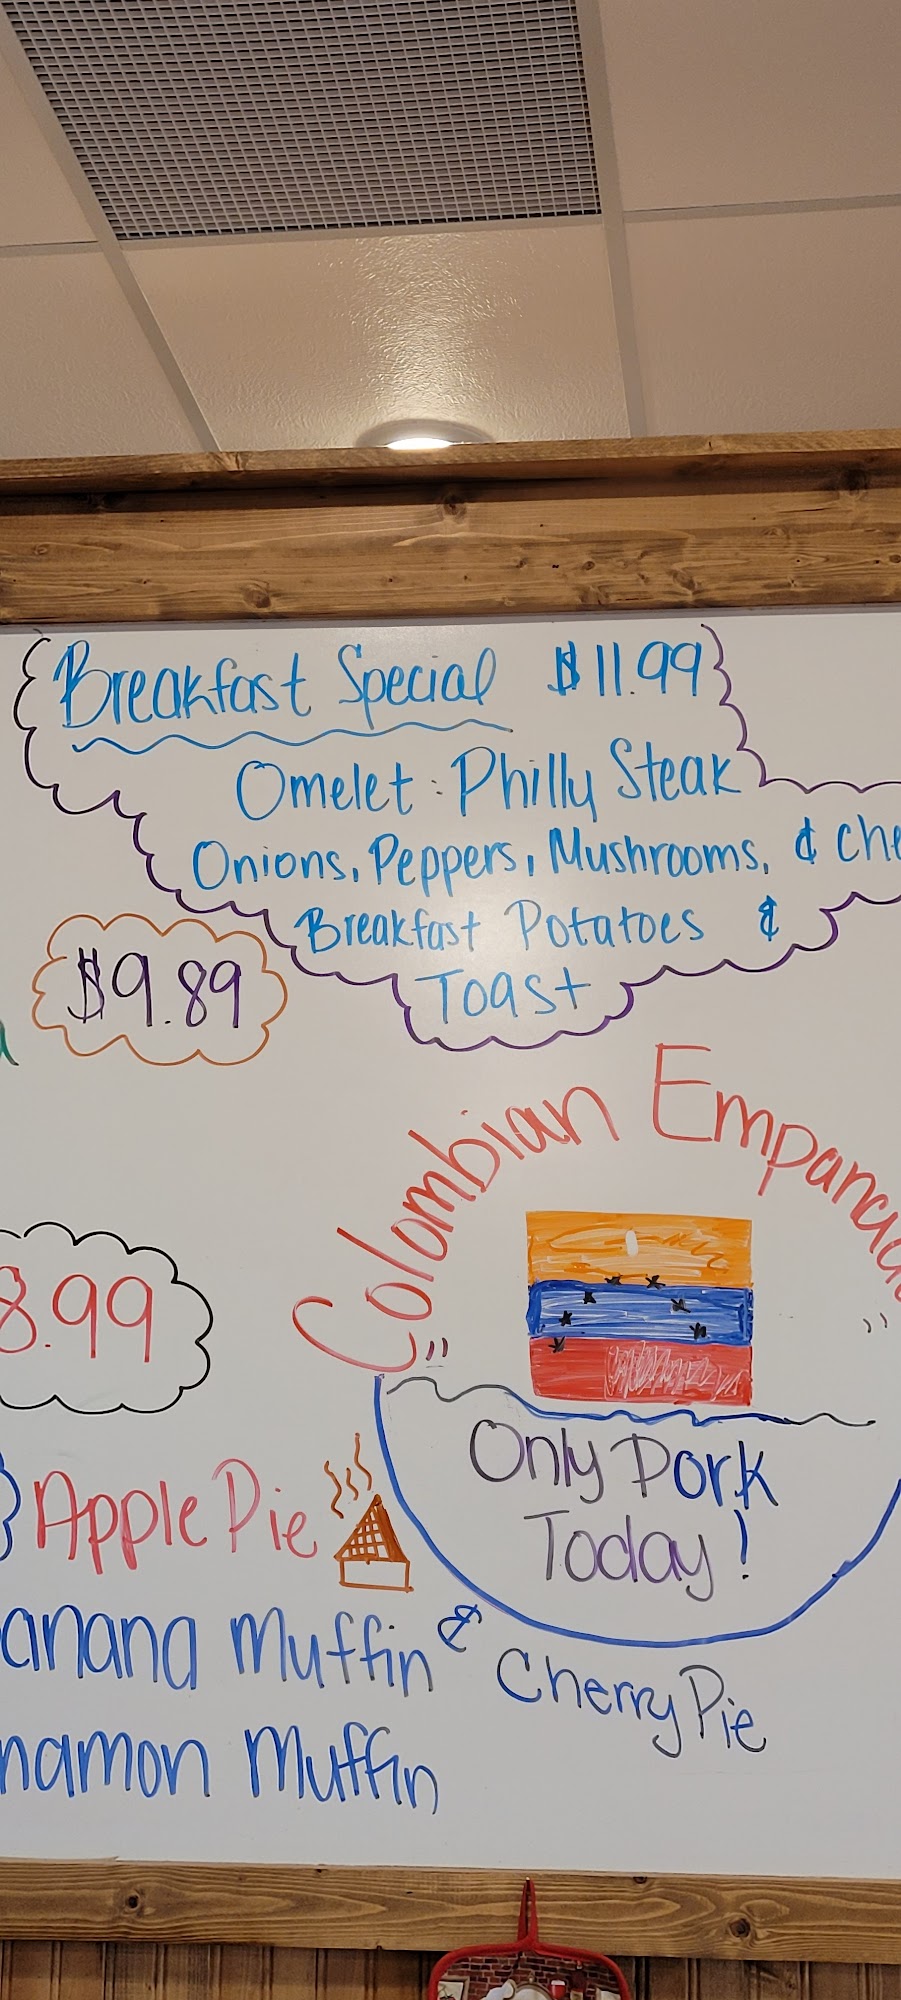 Breakfast Special $11.99
Omelet: Philly Steak
Onions, Peppers, Mushrooms, & Che
Breakfast Potatoes &
Toast
$9.89
Colombian Empanada
8.99
Only Pork
Today!
Apple Pie
anana Muffin & Cherry Pie
namon Muffin